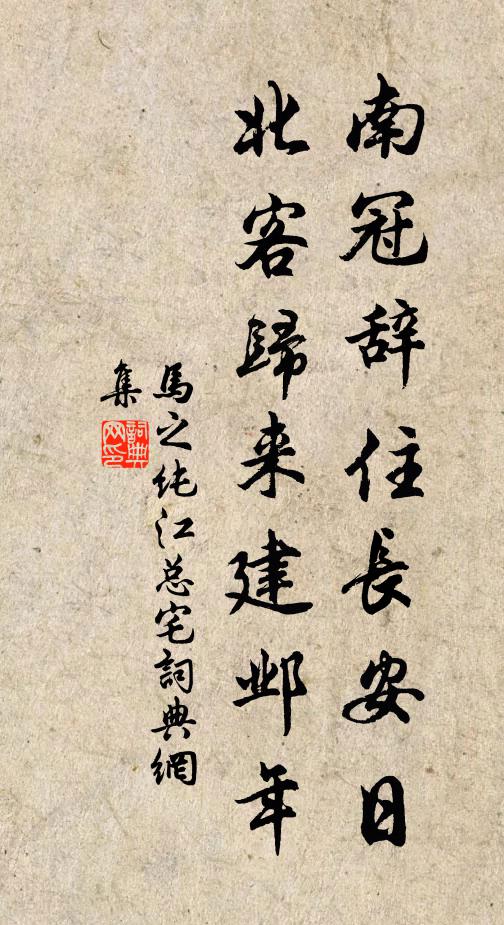 南冠辞住長安日
北客歸来建邺年
馬之纯江总宅詞典網
集
詞典
网印